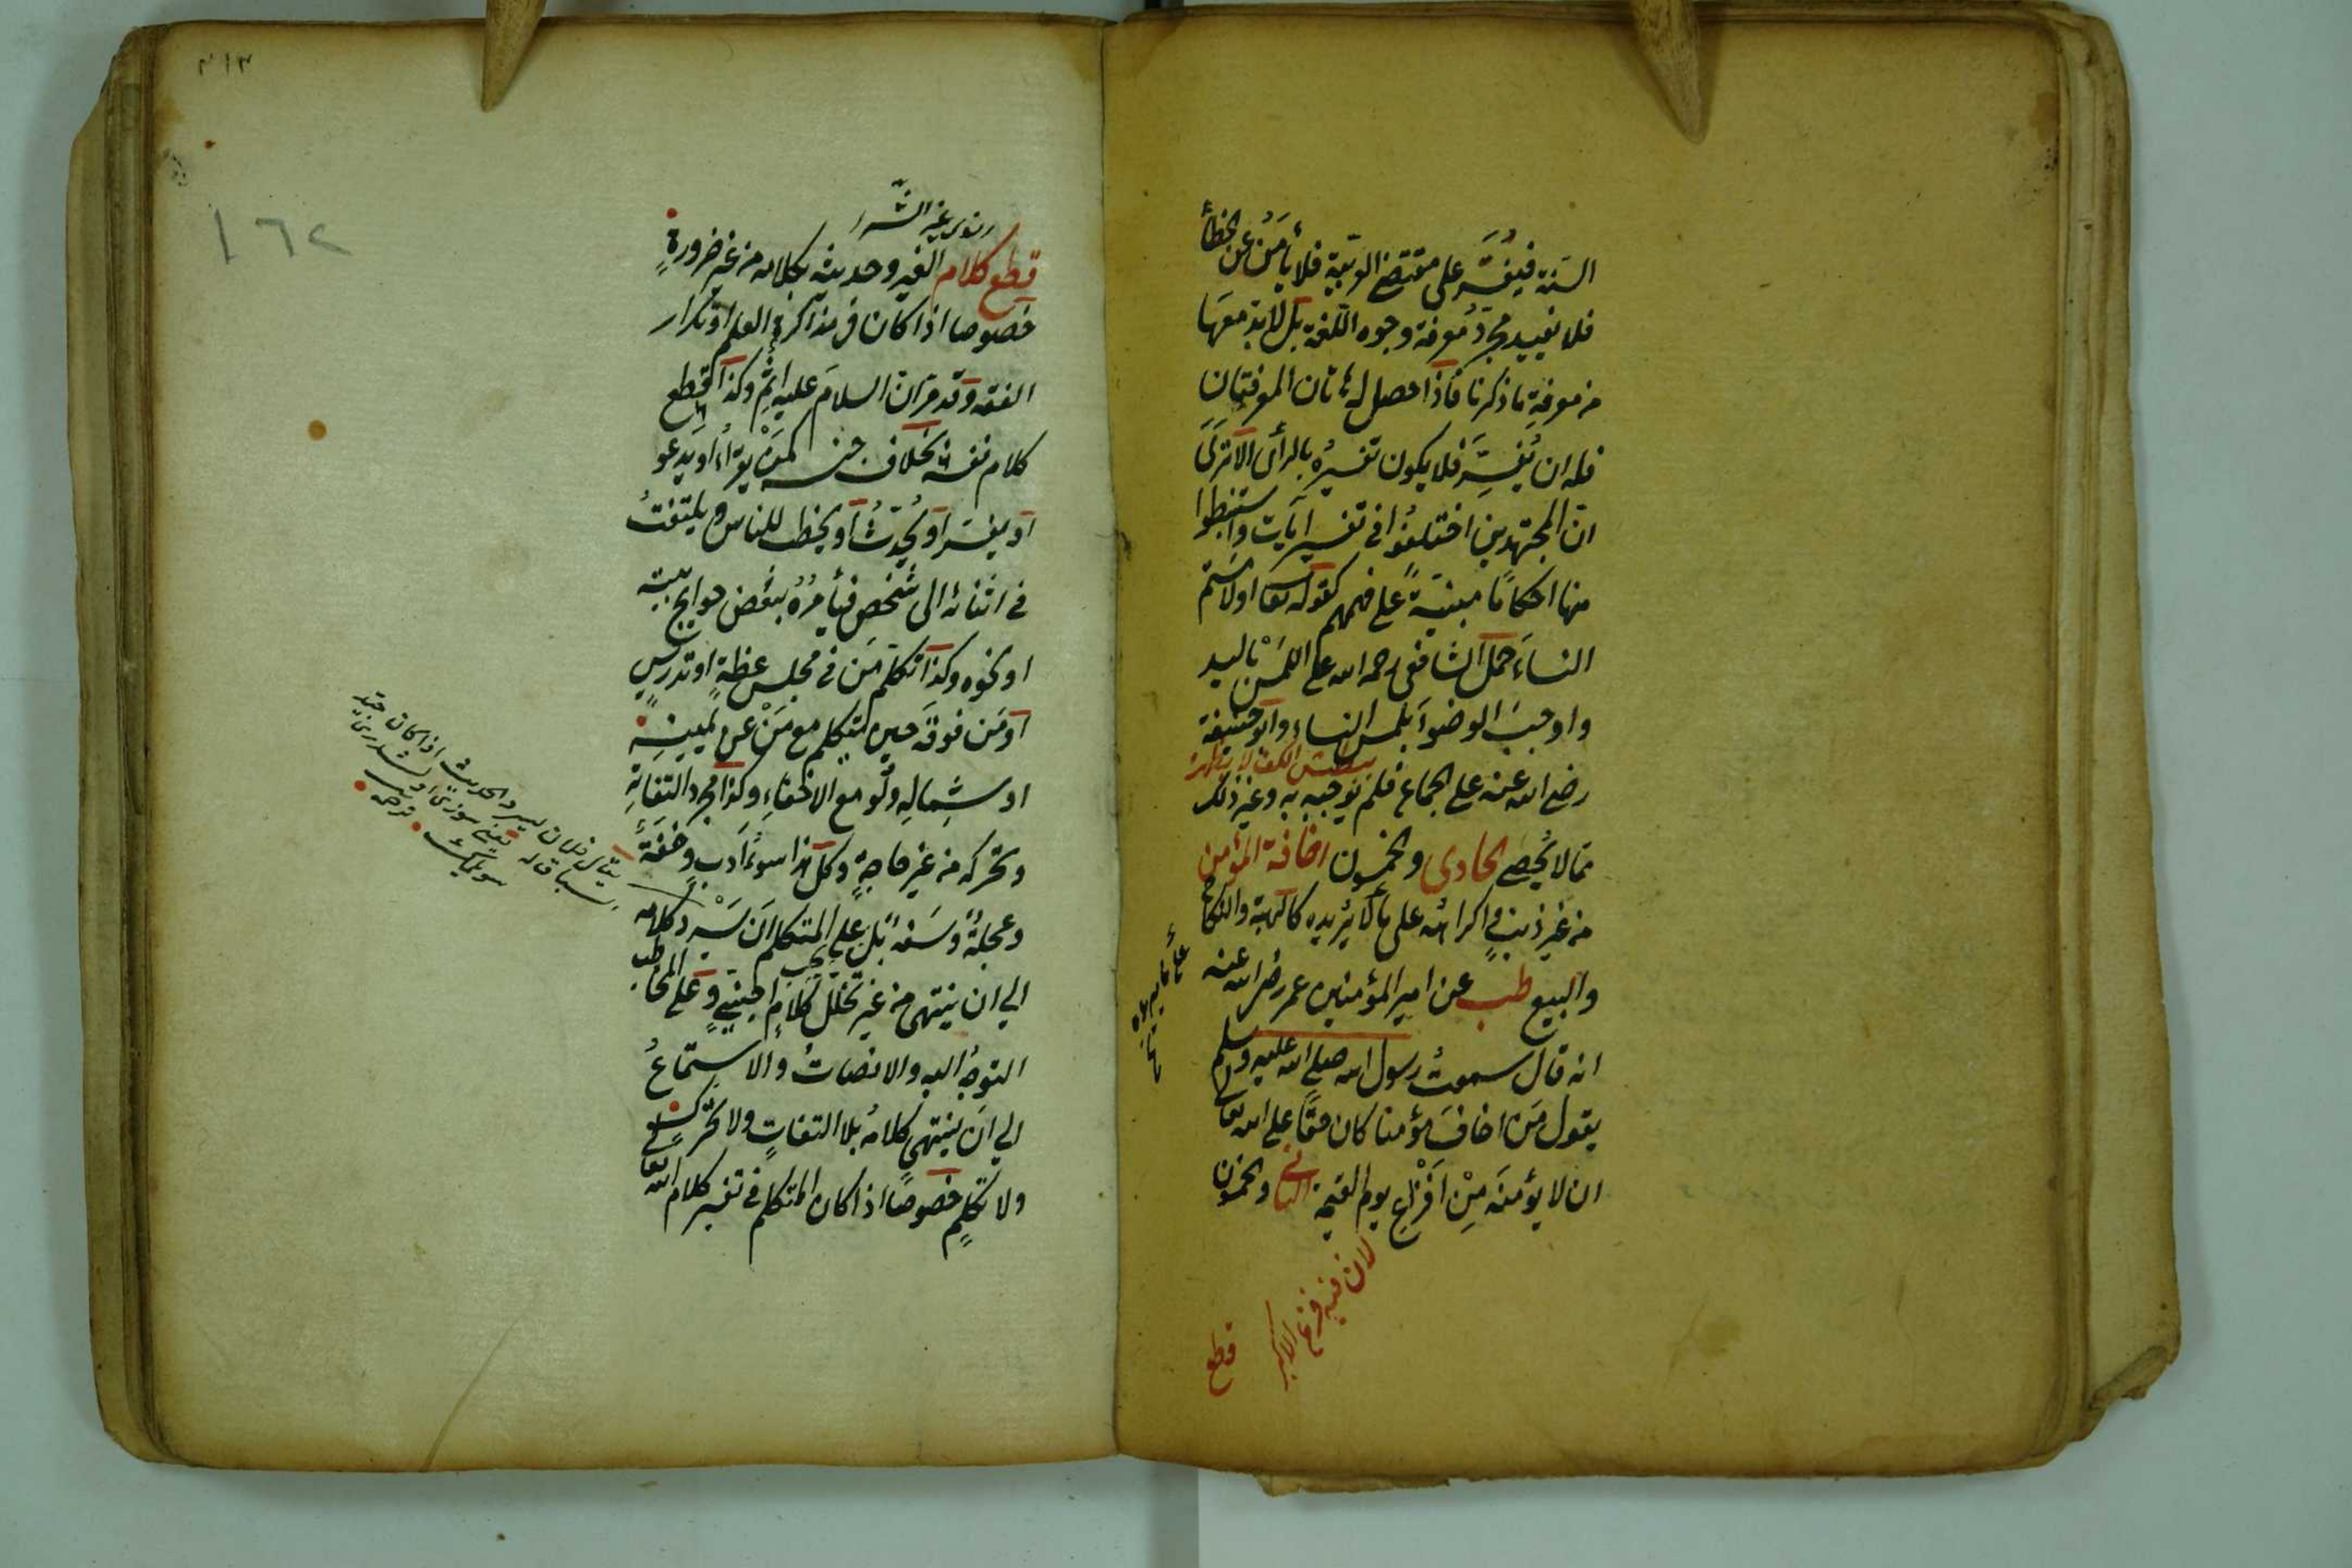 السنة فيفسر على مقتضى العربية فلا يأمن عن الخطأ
فلا يفيد مجرد معرفة وجوه اللغة بل لا بد معها
من معرفة ما ذكرنا فاذا حصل له هاتان المعرفتان
فله ان يفسر فلا يكون تفسيره بالرأى الا ترى
ان المجتهدين اختلفوا في تفسير آيات واستنبطوا
منها احكاما مبنية على فهمهم كقوله تعا او لامستم
النساء حمل الشافعى رحمه الله على اللمس باليد
واوجب الوضوأ بلمس النساء وابو حنيفة
رضى الله عنه على الجماع فلم يوجبه به وغير ذلك
مما لا يحصى الحادى والخمسون اخافة المؤمن
من غير ذنب واكراهه على ما لا يريده كالهبة والنكاح
والبيع طب عن امير المؤمنين عمر رضى الله عنه
انه قال سمعت رسول الله صلى الله عليه وسلم
يقول من اخاف مؤمنا كان حقا على الله تعالى
ان لا يؤمنه من افزاع يوم القيمة الثانى والخمسون
لان فيه فزع الاكبر
قطع
٣١٣
١٦٢
قطع كلام الغير وحديثه بكلامه من غير ضرورة
خصوصا اذا كان فى مذاكرة العلم او تكرار
الفقه وقد مر ان السلام عليه اثم وكذا قطع
كلام نفسه بخلاف جنسه كمن يقرأ او يدعو
او يفسر او يحدث او يخطب للناس ويلتفت
في اثنائه الى شخص فيأمره ببعض حوايج بيته
او نحوه وكذا تكلم من في مجلس عظة او تدريس
او من فوقه حين يتكلم مع من عن يمينه
او شماله ولو مع الاخفاء وكذا مجرد التفاته
وتحركه من غير حاجة وكل هذا سوء ادب وخفة
وعجلة وسفه بل على المتكلم ان يسرد كلامه
الى ان ينتهى من غير تخلل كلام اجنبى وعلى المخاطب
التوجه اليه والانصات والاستماع
الى ان ينتهى كلامه بلا التفات ولا تحرك
ولا تكلم خصوصا اذا كان المتكلم في تفسير كلام الله تعا
يقال فلان يسرد الحديث اذا كان جيد
السياق له